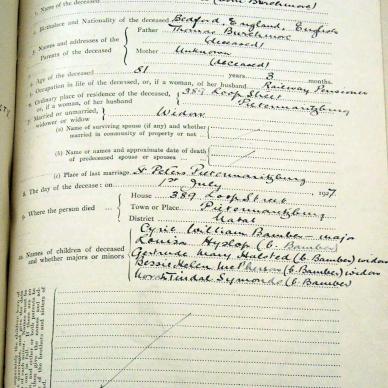 1. Name of the deceased
2. Birthplace and Nationality of the deceased Bedford, England, English
3. Names and addresses of the Parents of the deceased
Father Thomas Burchmore
(deceased)
Mother Unknown
(deceased)
4. Age of the deceased 81 years 3 months.
5. Occupation in life of the deceased, or, if a woman, of her husband Railway Pensioner
6. Ordinary place of residence of the deceased, or, if a woman, of her husband 389 Loop Street
Pietermaritzburg
7. Married or unmarried, widower or widow Widow
(a) Name of surviving spouse (if any) and whether married in community of property or not
(b) Name or names and approximate date of death of predeceased spouse or spouses
(c) Place of last marriage St Peters Pietermaritzburg
8. The day of the decease: on 1st July 1927
9. Where the person died
House 389 Loop Street
Town or Place Pietermaritzburg
District Natal
10. Names of children of deceased and whether majors or minors
Cyril William Bamber - major
Louisa Hyslop (b. Bamber)
Gertrude Mary Halsted (b. Bamber) widow
Bessie Helen (b. Bamber) widow
Tindal Symonds (b. Bamber)